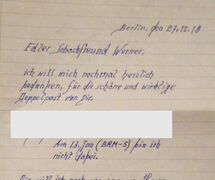 Berlin, den 27.12.18
Edler Schachfreund Werner,
ich will mich nochmal herzlich
für die schöne und wichtige
Doppelpost von Dir.
Am 13. Jan (BRM-5) bin ich
nicht dabei.
Die will ich noch